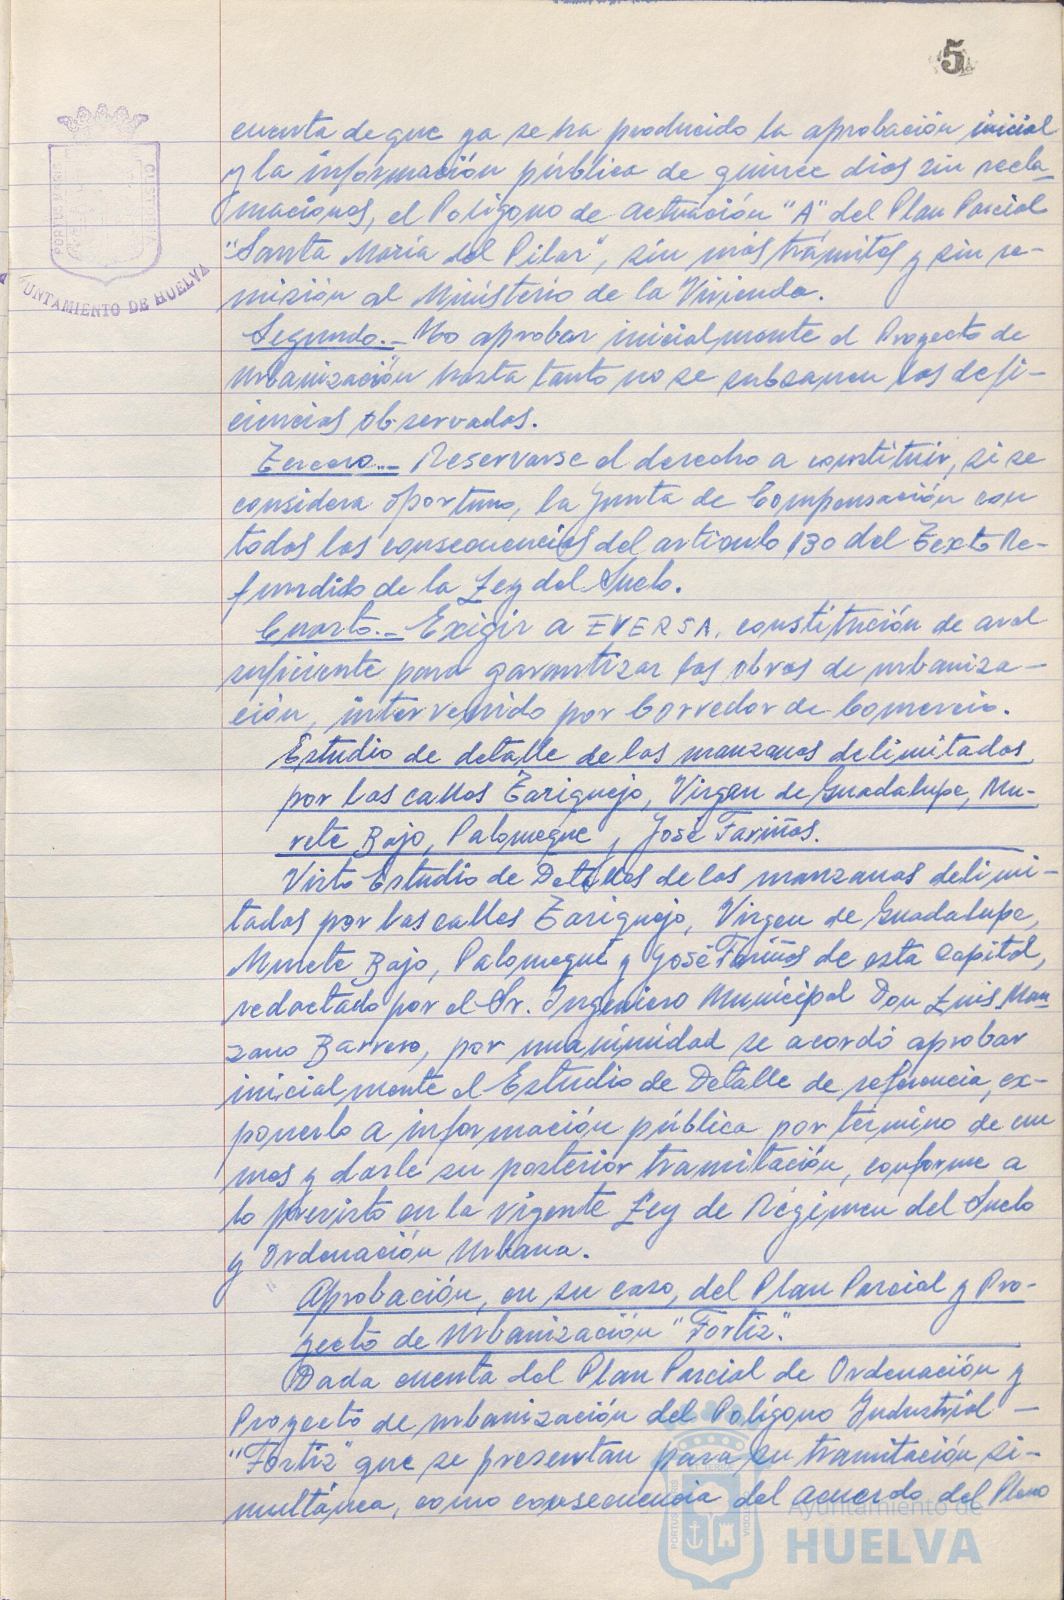 5
cuenta de que ya se ha producido la aprobación inicial
y la información pública de quince días sin recla-
maciones, el Polígono de actuación "A" del Plan Parcial
"Santa María del Pilar", sin más trámites y sin re-
misión al Ministerio de la Vivienda.
Segundo.- No aprobar inicialmente el Proyecto de
Urbanización hasta tanto no se subsanen las defi-
ciencias observadas.
Tercero.- Reservarse el derecho a constituir, si se
considera oportuno, la Junta de Compensación con
todas las consecuencias del artículo 130 del Texto Re-
fundido de la Ley del Suelo.
Cuarto.- Exigir a EVERSA, constitución de aval
suficiente para garantizar las obras de urbaniza-
ción, intervenido por Corredor de Comercio.
Estudio de detalle de las manzanas delimitadas
por las calles Tariquejo, Virgen de Guadalupe, Mu-
rete Bajo, Palomeque, José Fariñas.
Visto Estudio de Detalles de las manzanas delimi-
tadas por las calles Tariquejo, Virgen de Guadalupe,
Murete Bajo, Palomeque y José Fariñas de esta Capital,
redactado por el Sr. Ingeniero Municipal Don Luis Man-
zano Barrero, por unanimidad se acordó aprobar
inicialmente el Estudio de Detalle de referencia, ex-
ponerlo a información pública por término de un
mes y darle su posterior tramitación, conforme a
lo previsto en la vigente Ley de Régimen del Suelo
y Ordenación Urbana.
Aprobación, en su caso, del Plan Parcial y Pro-
yecto de Urbanización "Fortiz".
Dada cuenta del Plan Parcial de Ordenación y
Proyecto de urbanización del Polígono Industrial -
"Fortiz" que se presentan para su tramitación si-
multánea, como consecuencia del acuerdo del Pleno
AYUNTAMIENTO DE HUELVA
PORTUS MARIS
CUSTODIA
Ayuntamiento de
HUELVA